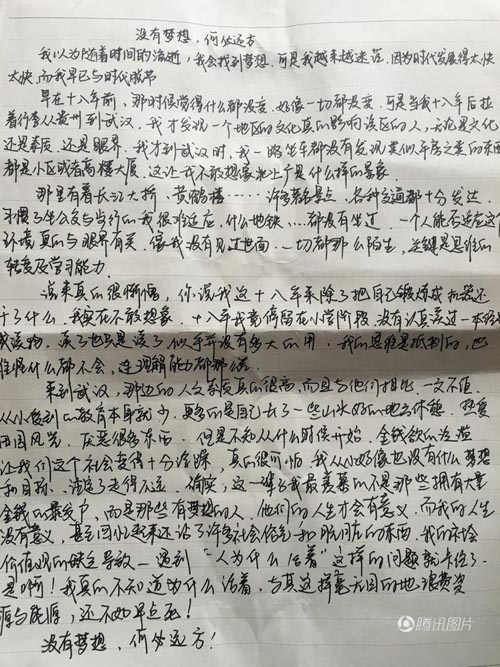 没有梦想，何处远方
我以为随着时间的流逝，我会找到梦想，可是我越来越迷茫，因为时代发展得太快
太快，而我早已与时代脱节
早在十八年前，那时候觉得什么都没变，好像一切都没变，可是当我十八年后拉
着行李从贵州到武汉，我才发现一个地区的文化真的影响该区的人，无论是文化
还是素质，还是眼界。我才到武汉时，我一路坐车都没有发现类似平房之类的东西
都是小区或者高楼大厦。这让我不敢想象 上广是什么样的景象
那里有着长江大桥，黄鹤楼……许多著名景点，各种交通都十分发达
习惯了坐公交与步行的我很难适应，什么地铁……都没有坐过，一个人能否适应这个
环境真的与眼界有关，像我没有见过世面，一切都那么陌生，关键是思维的
转变及学习能力
说来真的很惭愧，你说我这十八年来除了把自己锻炼成机器还
干了什么，我实在不敢想象，十八年我竟停留在小学阶段，没有认真读过一本名著
或读物，读了也只是读了，似乎并没有多大的用，我的思维是抵制的，也
什么都不会，连理解能力都那么
来到武汉，那边的人文素质真的很高，而且与他们相比，一文不值
从小受到的教育本身就少，更多的是自己去了一些山水好的地方休憩，热爱
田园风光，厌恶很多东西，但是不知从什么时候开始，金钱欲的泛滥
让我们这个社会变得十分污深，真的很可怕。我从小好像也没有什么梦想
和目标，注定了走得不远，确实，这一辈子我最羡慕的不是那些拥有大量
金钱的暴发户，而是那些有梦想的人，他们的人生才会有意义，而我的人生
没有意义，甚至回忆起来还沾了许多社会俗气和肮脏的东西，我的社会
价值观的缺乏导致一遇到“人为什么活着”这样的问题就卡住了
是啊！我真的不知道为什么活着，与其这样毫无目的地浪费资
源与能源，还不如早点死！
没有梦想，何处远方！
腾讯图片